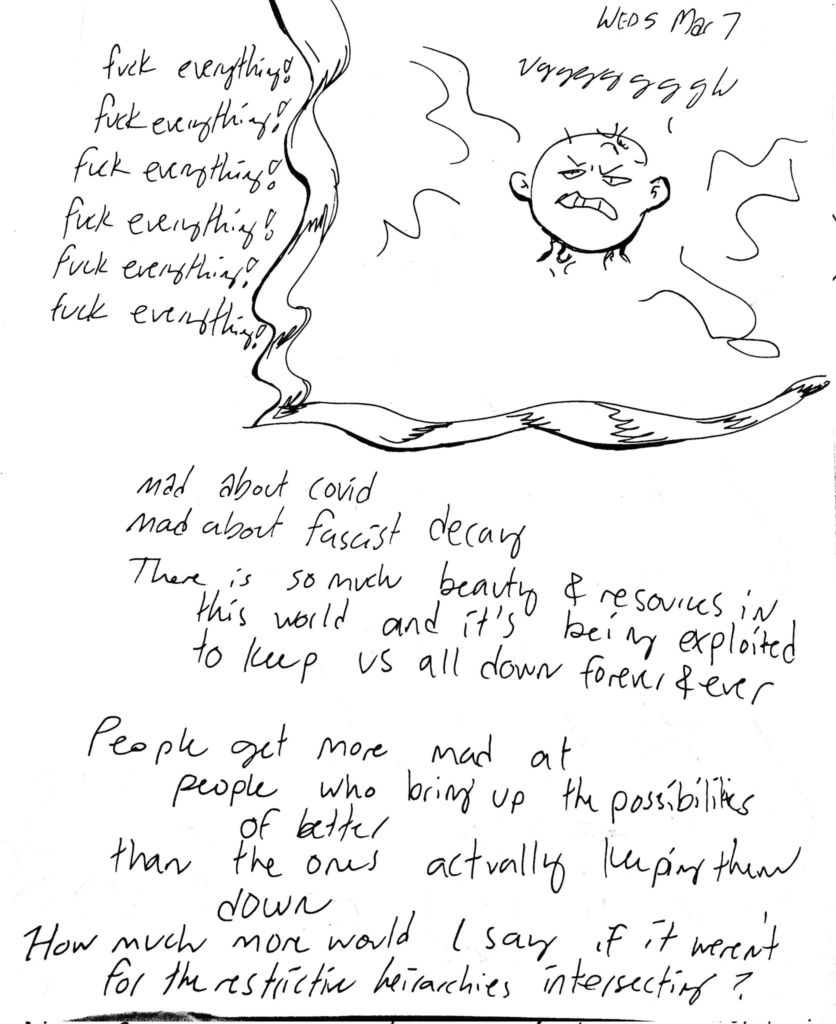 WEDS Mar 7
vggggggggh
fuck everything!
fuck everything!
fuck everything!
fuck everything!
fuck everything!
fuck everything!
mad about covid
mad about fascist decay
There is so much beauty & resources in
this world and it's being exploited
to keep us all down forever & ever
People get more mad at
people who bring up the possibilities
of better
than the ones actually keeping them
down
How much more would I say if it weren't
for the restrictive heirarchies intersecting?